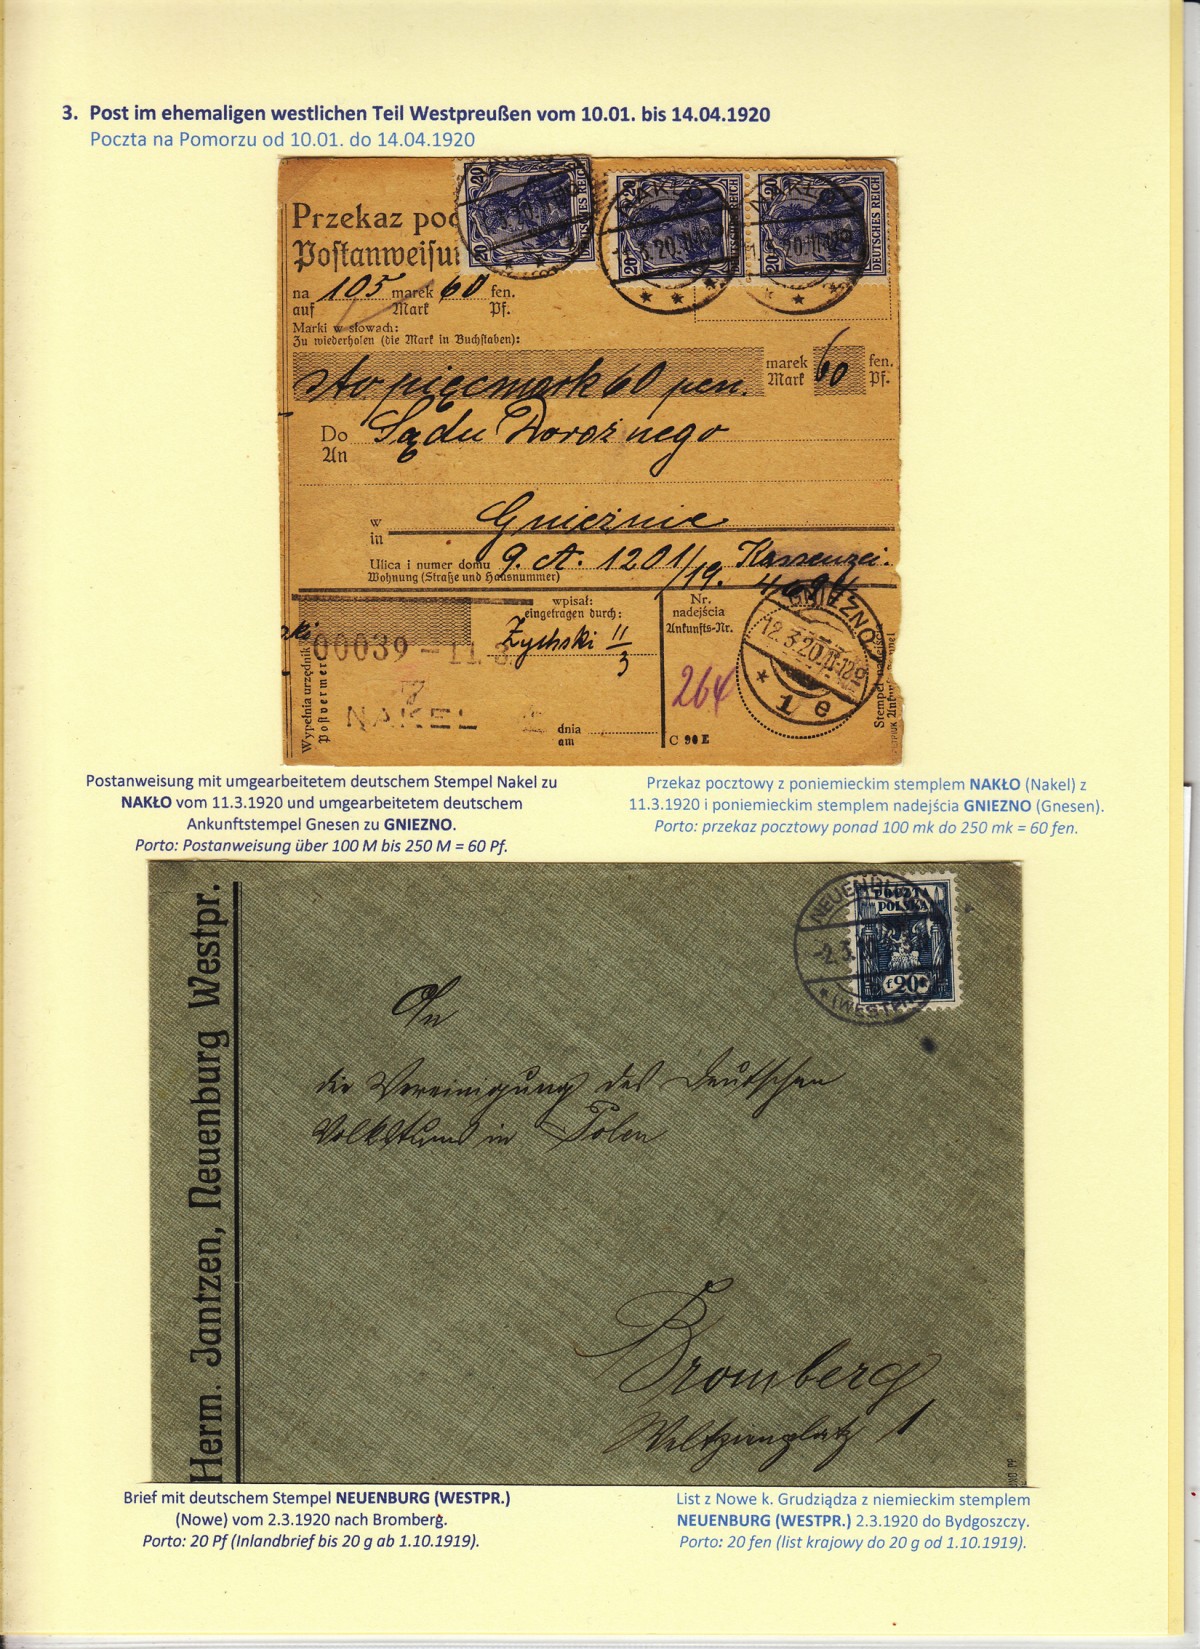 3. Post im ehemaligen westlichen Teil Westpreußen vom 10.01. bis 14.04.1920
Poczta na Pomorzu od 10.01. do 14.04.1920
Przekaz poc
Postanweisun
20 20 DEUTSCHES REICH
20 20 DEUTSCHES REICH
20 20 DEUTSCHES REICH
NAKŁO
11.3.20.
NAKŁO
na 105 marek 60 fen.
auf Mark Pf.
Marki w słowach:
Zu wiederholen (die Mark in Buchstaben):
sto pięcmark 60 fen. marek 60 fen.
Mark Pf.
Do Sądu Dorożnego
An
w Gnieźnie
in
Ulica i numer domu 9. A. 1201/19. Kassenzei.
Wohnung (Straße und Hausnummer)
wpisał:
eingetragen durch:
Zychski 11/3
00039 – 11. 3.
NAKEL
Wypełnia urzędnik
Postverme
dnia
am
Nr.
nadejścia
Ankunfts-Nr.
264
C 90 E
GNIEZNO
12.3.20.11-12
* 1 e
Stempel nadejścia
Postanweisung mit umgearbeitetem deutschem Stempel Nakel zu
NAKŁO vom 11.3.1920 und umgearbeitetem deutschem
Ankunftstempel Gnesen zu GNIEZNO.
Porto: Postanweisung über 100 M bis 250 M = 60 Pf.
Przekaz pocztowy z poniemieckim stemplem NAKŁO (Nakel) z
11.3.1920 i poniemieckim stemplem nadejścia GNIEZNO (Gnesen).
Porto: przekaz pocztowy ponad 100 mk do 250 mk = 60 fen.
Herm. Jantzen, Neuenburg Westpr.
POCZTA
POLSKA
f 20 f
NEUENBURG
-2.3.
* (WESTPR.)
An
die Vereinigung des Deutschen
Volkstums in Polen
Bromberg
Weltzienplatz 1
Brief mit deutschem Stempel NEUENBURG (WESTPR.)
(Nowe) vom 2.3.1920 nach Bromberg.
Porto: 20 Pf (Inlandbrief bis 20 g ab 1.10.1919).
List z Nowe k. Grudziądza z niemieckim stemplem
NEUENBURG (WESTPR.) 2.3.1920 do Bydgoszczy.
Porto: 20 fen (list krajowy do 20 g od 1.10.1919).